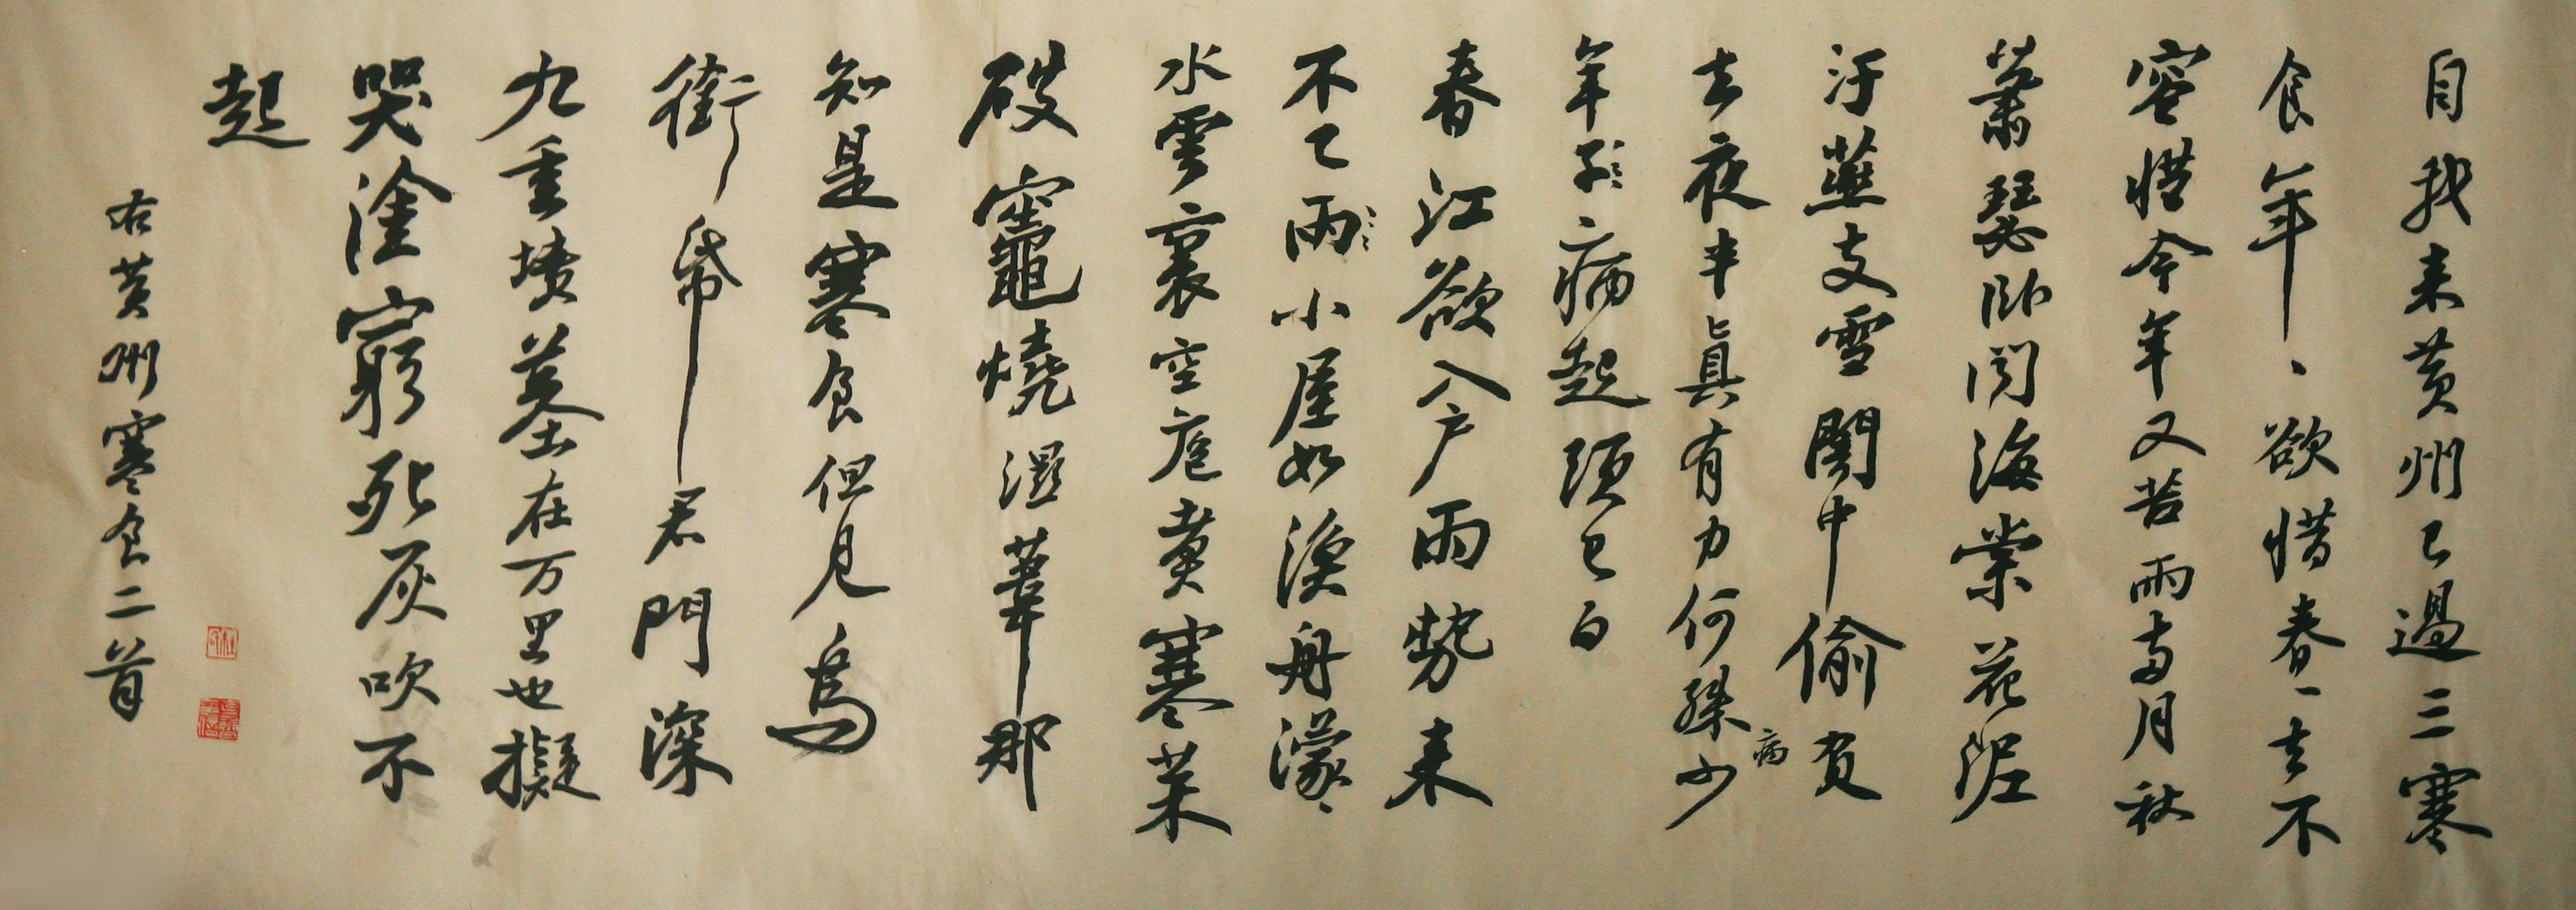 自我来黄州已過三寒
食年、欲惜春一去不
容惜今年又苦雨兩月秋
蕭瑟卧聞海棠花泥
汙燕支雪闇中偷負
去夜半真有力何殊少
病
年子病起頭已白
春江欲入户雨勢来
不已雨小屋如漁舟濛、
水雲裏空庖煮寒菜
破竈燒濕葦那
知是寒食但見烏
銜帋君門深
九重墳墓在万里也擬
哭塗窮死灰吹不
起
右黄州寒食二首